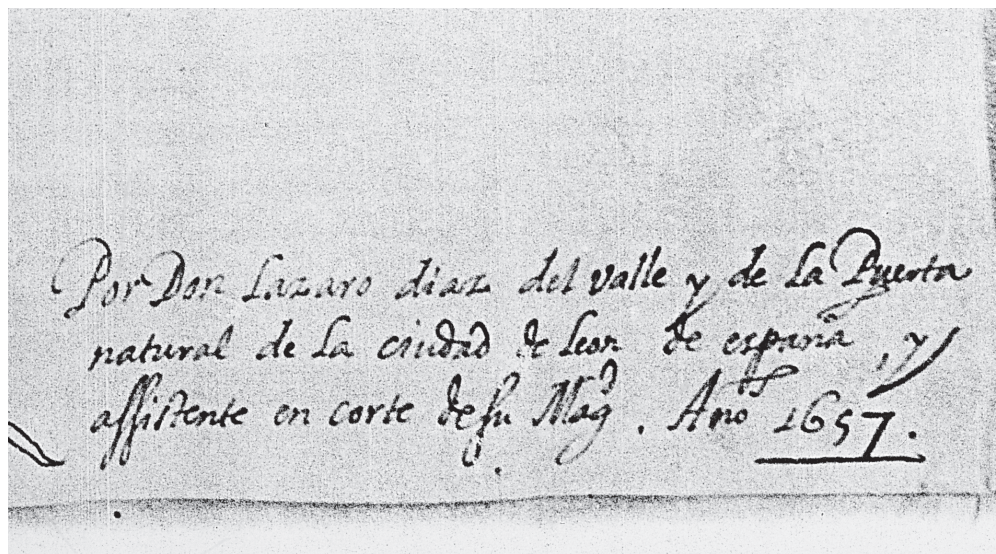 Por Don Lazaro diaz del valle y de La Puerta
natural de La ciudad de Leon de españa , y
assistente en corte de su Magd . Año 1657.